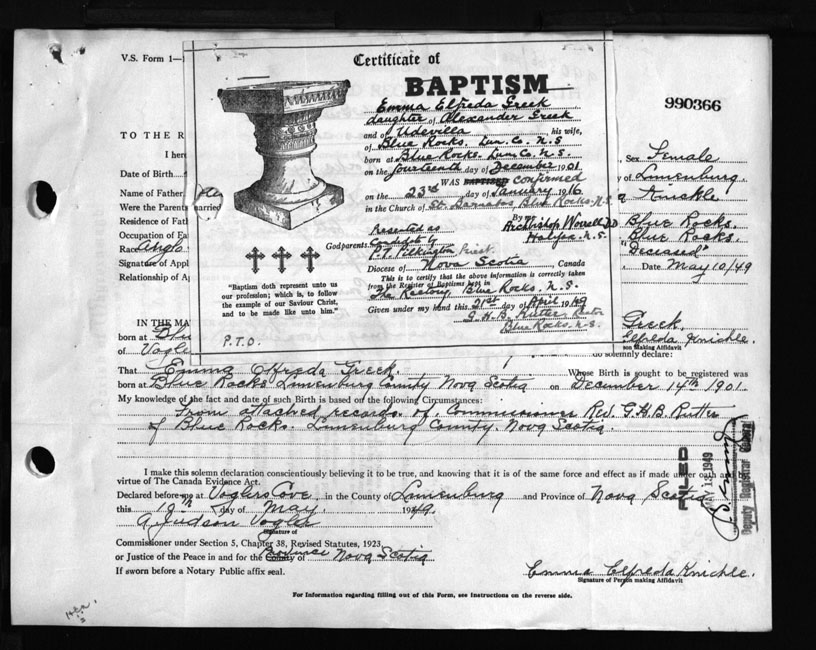 V.S. Form 1—
Certificate of
BAPTISM
Emma Elfreda Greek
daughter of Alexander Greek
and of Udevilla his wife,
of Blue Rocks. Lun. Co. N.S
born at Blue Rocks. Lun. Co. N.S.
on the fourteenth day of December 1901
WAS BAPTISED confirmed
on the 23rd day of January 1916
in the Church of St. Barnabas Blue Rocks. N.S.
Presented as By
Candidate by Archbishop Worrell D.D.
Godparents. Halifax. N.S.
Priest.
Diocese of Nova Scotia, Canada
This is to certify that the above information is correctly taken
from the Register of Baptisms kept in
The Rectory Blue Rocks. N.S.
Given under my hand this 21st day of April 1949
G.H.B. Rutter, Rector
Blue Rocks. N.S.
"Baptism doth represent unto us
our profession; which is, to follow
the example of our Saviour Christ,
and to be made like unto him."
P.T.O.
990366
TO THE R
I here
Sex Female
Date of Birth
of Lunenburg
Name of Father
Knickle
Were the Parents married
Residence of Fath
Blue Rocks.
Occupation of Fa
Blue Rocks.
Race Anglo
"Deceased"
Signature of Appl
Date May 10/49
Relationship of A
IN THE MA
Greek,
born at Blu
Elfreda Knickle.
son Making Affidavit
of Vogle
do solemnly declare:
That Emma Elfreda Greek. Whose Birth is sought to be registered was
born at Blue Rocks Lunenburg County Nova Scotia on December 14th 1901.
My knowledge of the fact and date of such Birth is based on the following Circumstances:
From attached records of Commissioner Rev. G.H.B. Rutter
of Blue Rocks. Lunenburg County. Nova Scotia.
I make this solemn declaration conscientiously believing it to be true, and knowing that it is of the same force and effect as if made under oath
virtue of The Canada Evidence Act.
Declared before me at Voglers Cove, in the County of Lunenburg and Province of Nova Scotia
this day of May 1949.
A. Judson Vogler
Signature of
Commissioner under Section 5, Chapter 38, Revised Statutes, 1923,
or Justice of the Peace in and for the County of Province Nova Scotia
If sworn before a Notary Public affix seal.
Emma Elfreda Knickle.
Signature of Person making Affidavit
For Information regarding filling out of this Form, see Instructions on the reverse side.
FILED
13 1949
Deputy Registrar General